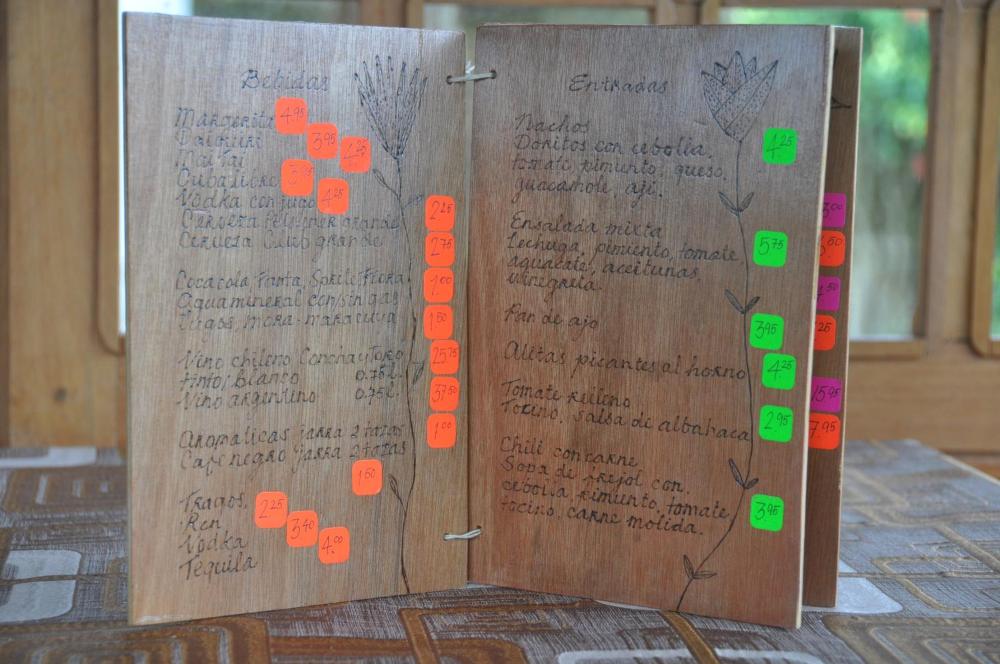 Bebidas
Margarita 4.95
Daiquiri 3.95
Mai Tai 4.25
Cuba libre 3.95
Vodka con jugo 4.25
Cerveza Pelsener grande 2.25
Cerveza Club grande 2.75
Cocacola Fanta, Sprite, Fiora 1.00
Agua mineral con/sin gas
Jugos, mora-maracuya 1.50
Vino chileno Concha y Toro 25.75
tinto/blanco 0.75 l.
Vino argentino 0.75 l. 37.50
Aromaticas jarra 2 tazas 1.00
Cafe negro jarra 2 tazas
1.50
Tragos,
Ron 2.25
Vodka 3.40
Tequila 4.00
Entradas
Nachos
Doritos con cebolla, 4.25
tomate pimiento, queso,
guacamole, aji.
Ensalada mixta
Lechuga, pimiento, tomate 5.75
aguacate, aceitunas
vinegreta.
Pan de ajo 3.95
Alitas picantes al horno 4.25
Tomate relleno
Tocino, salsa de albahaca 2.95
Chili con carne
Sopa de frejol con
cebolla, pimiento, tomate 3.95
tocino, carne molida.
.00
.50
.50
25
15.95
7.95